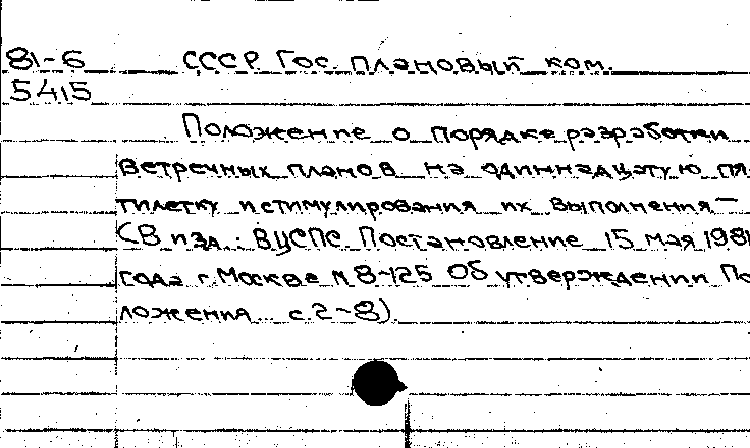 81-6 СССР Гос. плановый ком.
5415
Положение о порядке разработки
встречных планов на одиннадцатую пя
тилетку и стимулирования их выполнения —
(В изд.: ВЦСПС. Постановление 15 мая 1981
года г. Москва N 8-125 Об утверждении По
ложения... с. 2-8).